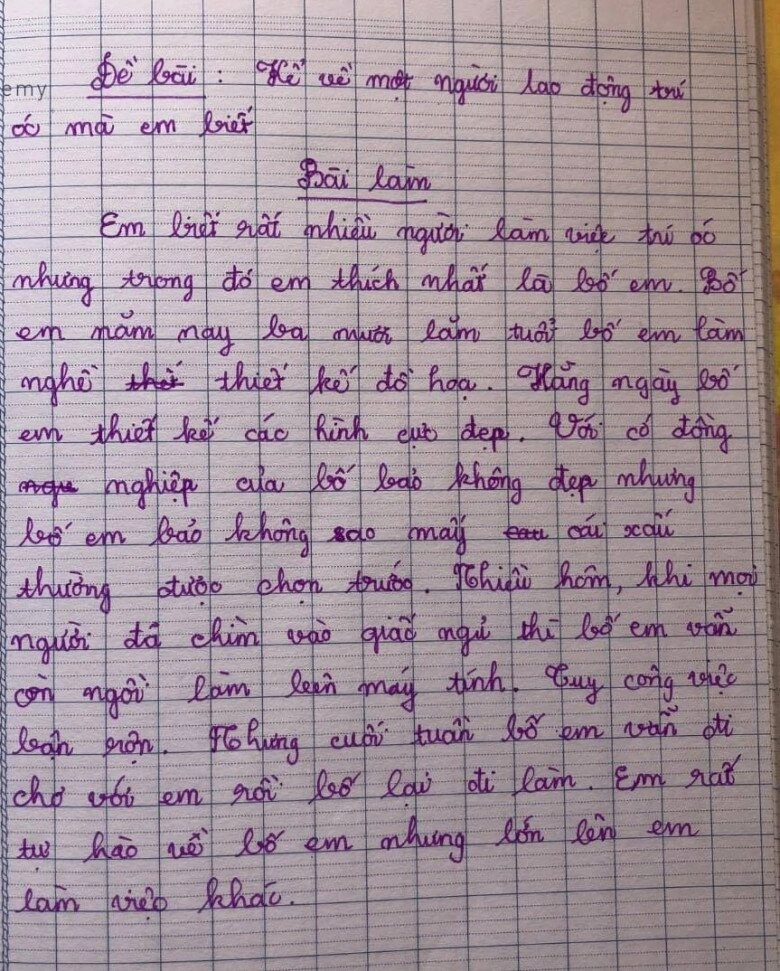 emy
Đề bài : Kể về một người lao động trí
óc mà em biết
Bài làm
Em biết rất nhiều người làm việc trí óc
nhưng trong đó em thích nhất là bố em. Bố
em năm nay ba mươi lăm tuổi bố em làm
nghề thiết kế đồ họa. Hằng ngày bố
em thiết kế các hình cực đẹp. Với cô đồng
nghiệp của bố bảo không đẹp nhưng
bố em bảo không sao mấy cái xấu
thường được chọn trước. Nhiều hôm, khi mọi
người đã chìm vào giấc ngủ thì bố em vẫn
còn ngồi làm leen máy tính. Tuy công việc
bận rộn. Nhưng cuối tuần bố em vẫn đi
chơ với em rồi bố lại đi làm. Em rất
tự hào về bố em nhưng lớn lên em
làm việc khác.